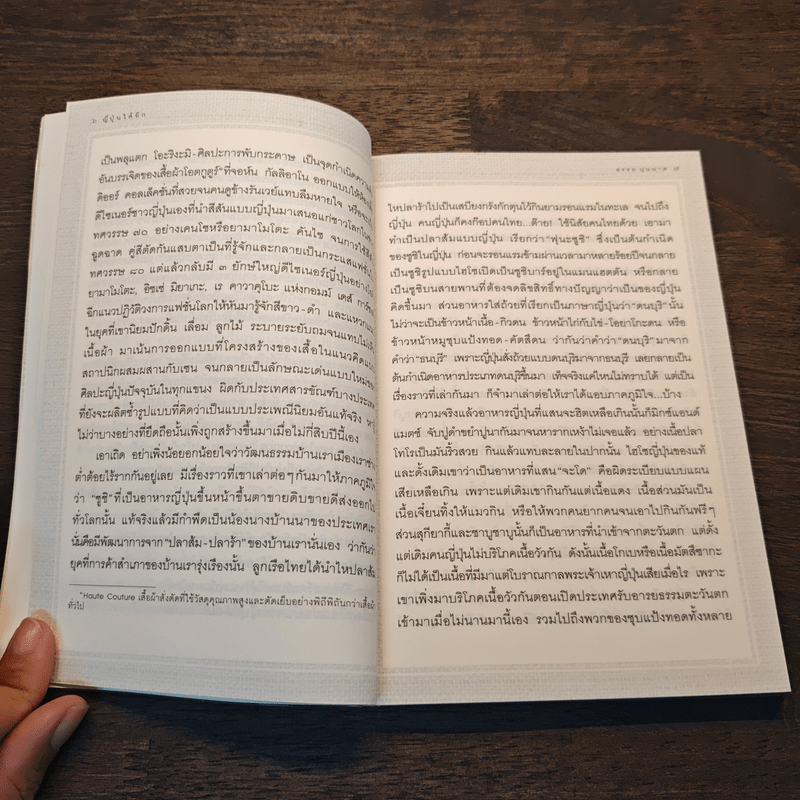 ๖ ญี่ปุ่นใต้ดิก
เป็นพลุแตก โอะริงะมิ-ศิลปะการพับกระดาษ เป็นจุดกำเนิดความ
อันบรรเจิดของเสื้อผ้าโอตกูตูร์*ที่จอห์น กัลลิอาโน ออกแบบให้ห้อง
ดิออร์ คอลเล็คชั่นที่สวยจนคนดูข้างรันเวย์แทบลืมหายใจ หรือจะ
ดีไซเนอร์ชาวญี่ปุ่นเองที่นำสีสันแบบญี่ปุ่นมาเสนอแก่ชาวโลกใน
ทศวรรษ ๗๐ อย่างเคนโซหรือยามาโมโตะ คันไซ จนการใช้สี
ฉูดฉาด คู่สีตัดกันแสบตาเป็นที่รู้จักและกลายเป็นกระแสแฟชั่น
ทศวรรษ ๘๐ แต่แล้วกลับมี ๓ ยักษ์ใหญ่ดีไซเนอร์ญี่ปุ่นอย่าง
ยามาโมโตะ, อิซเซ่ มิยาเกะ, เร คาวาคุโบะ แห่งกอมม์ เดส์ การ์
ฉีกแนวปฏิวัติวงการแฟชั่นโลกให้หันมารู้จักสีขาว-ดำ และแหวกแนว
ในยุคที่เขานิยมปักดิ้น เลื่อม ลูกไม้ ระบายระยับถมจนแทบไม่เห็น
เนื้อผ้า มาเน้นการออกแบบที่โครงสร้างของเสื้อในแนวคิดแบบ
สถาปนิกผสมผสานกับเซน จนกลายเป็นลักษณะเด่นแบบใหม่ของ
ศิลปะญี่ปุ่นปัจจุบันในทุกแขนง ผิดกับประเทศสารขัณฑ์บางประเทศ
ที่ยังจะผลิตซ้ำรูปแบบที่คิดว่าเป็นแบบประเพณีนิยมอันแท้จริง
ไม่ว่าบางอย่างที่ยึดถือนั้นเพิ่งถูกสร้างขึ้นมาเมื่อไม่กี่สิบปีนี้เอง
เอาเถิด อย่าเพิ่งน้อยอกน้อยใจว่าวัฒนธรรมบ้านเราเมืองเราช่าง
ต่ำต้อยไร้รากกันอยู่เลย มีเรื่องราวที่เขาเล่าต่อๆกันมาให้ภาคภูมิใจ
ว่า "ซูชิ"ที่เป็นอาหารญี่ปุ่นขึ้นหน้าขึ้นตาขายดิบขายดีส่งออกไป
ทั่วโลกนั้น แท้จริงแล้วมีกำพืดเป็นน้องนางบ้านนาของประเทศเรา
นั่นคือมีพัฒนาการจาก"ปลาส้ม-ปลาร้า"ของบ้านเรานั่นเอง ว่ากันว่า
ยุคที่การค้าสำเภาของบ้านเรารุ่งเรืองนั้น ลูกเรือไทยได้นำไหปลาส้ม
*Haute Couture เสื้อผ้าสั่งตัดที่ใช้วัสดุคุณภาพสูงและตัดเย็บอย่างพิถีพิถันกว่าเสื้อผ้า
ทั่วไป
ไหปลาร้าไปเป็นเสบียงกรังกักตุนไว้กินยามรอนแรมในทะเล จนไปถึง
ญี่ปุ่น คนญี่ปุ่นก็คงก๊อปคนไทย...ต๊าย! ใช้นิสัยคนไทยด้วย เอามา
ทำเป็นปลาส้มแบบญี่ปุ่น เรียกว่า"ฟุนะซูชิ" ซึ่งเป็นต้นกำเนิด
ของซูชิในญี่ปุ่น ก่อนจะรอนแรมข้ามผ่านเวลามาหลายร้อยปีจนกลาย
เป็นซูชิรูปแบบไฮโซเปิดเป็นซูชิบาร์อยู่ในแมนแฮตตัน หรือกลาย
เป็นซูชิบนสายพานที่ต้องจดลิขสิทธิ์ทางปัญญาว่าเป็นของญี่ปุ่น
คิดขึ้นมา ส่วนอาหารใส่ถ้วยที่เรียกเป็นภาษาญี่ปุ่นว่า"ดนบุริ"นั้น
ไม่ว่าจะเป็นข้าวหน้าเนื้อ-กิวดน ข้าวหน้าไก่กับไข่-โอยาโกะดน หรือ
ข้าวหน้าหมูชุบแป้งทอด-คัตสึดน ว่ากันว่าคำว่า"ดนบุริ"มาจาก
คำว่า"ธนบุรี" เพราะญี่ปุ่นสั่งถ้วยแบบดนบุริมาจากธนบุรี เลยกลายเป็น
ต้นกำเนิดอาหารประเภทดนบุริขึ้นมา เท็จจริงแค่ไหนไม่ทราบได้ แต่เป็น
เรื่องราวที่เล่ากันมา ก็จำมาเล่าต่อให้เราได้แอบภาคภูมิใจ...บ้าง
ความจริงแล้วอาหารญี่ปุ่นที่แสนจะฮิตเหลือเกินนั้นก็มิกซ์แอนด์
แมตช์ จับปูดำขยำปูนากันมาจนหารากเหง้าไม่เจอแล้ว อย่างเนื้อปลา
โทโรเป็นมันริ้วสวย กินแล้วแทบละลายในปากนั้น ไฮโซญี่ปุ่นของแท้
และดั้งเดิมเขาว่าเป็นอาหารที่แสน"จะโด" คือผิดระเบียบแบบแผน
เสียเหลือเกิน เพราะแต่เดิมเขากินกันแต่เนื้อแดง เนื้อส่วนมันเป็น
เนื้อเจี๋ยนทิ้งให้แมวกิน หรือให้พวกคนยากคนจนเอาไปกินกันฟรีๆ
ส่วนสุกียากี้และชาบูชาบูนั้นก็เป็นอาหารที่นำเข้าจากตะวันตก แต่ตั้ง
แต่เดิมคนญี่ปุ่นไม่บริโภคเนื้อวัวกัน ดังนั้นเนื้อโกเบหรือเนื้อมัตสึซากะ
ก็ไม่ได้เป็นเนื้อที่มีมาแต่โบราณกาลพระเจ้าเหาญี่ปุ่นเสียเมื่อไร เพราะ
เขาเพิ่งมาบริโภคเนื้อวัวกันตอนเปิดประเทศรับอารยธรรมตะวันตก
เข้ามาเมื่อไม่นานมานี้เอง รวมไปถึงพวกของชุบแป้งทอดทั้งหลาย